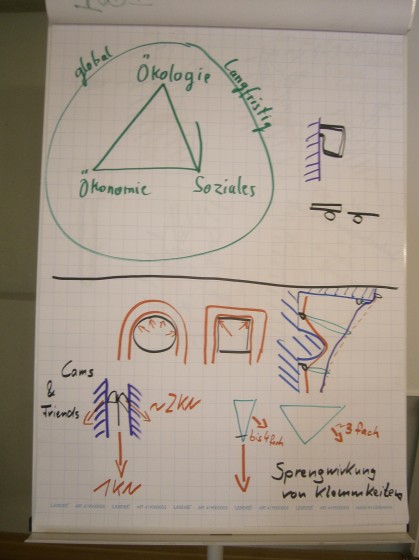 global
langfristig
Ökologie
Ökonomie
Soziales
Cams
&
Friends
~2KN
1KN
bis 4fach
~3fach
Sprengwirkung
von Klemmkeilen